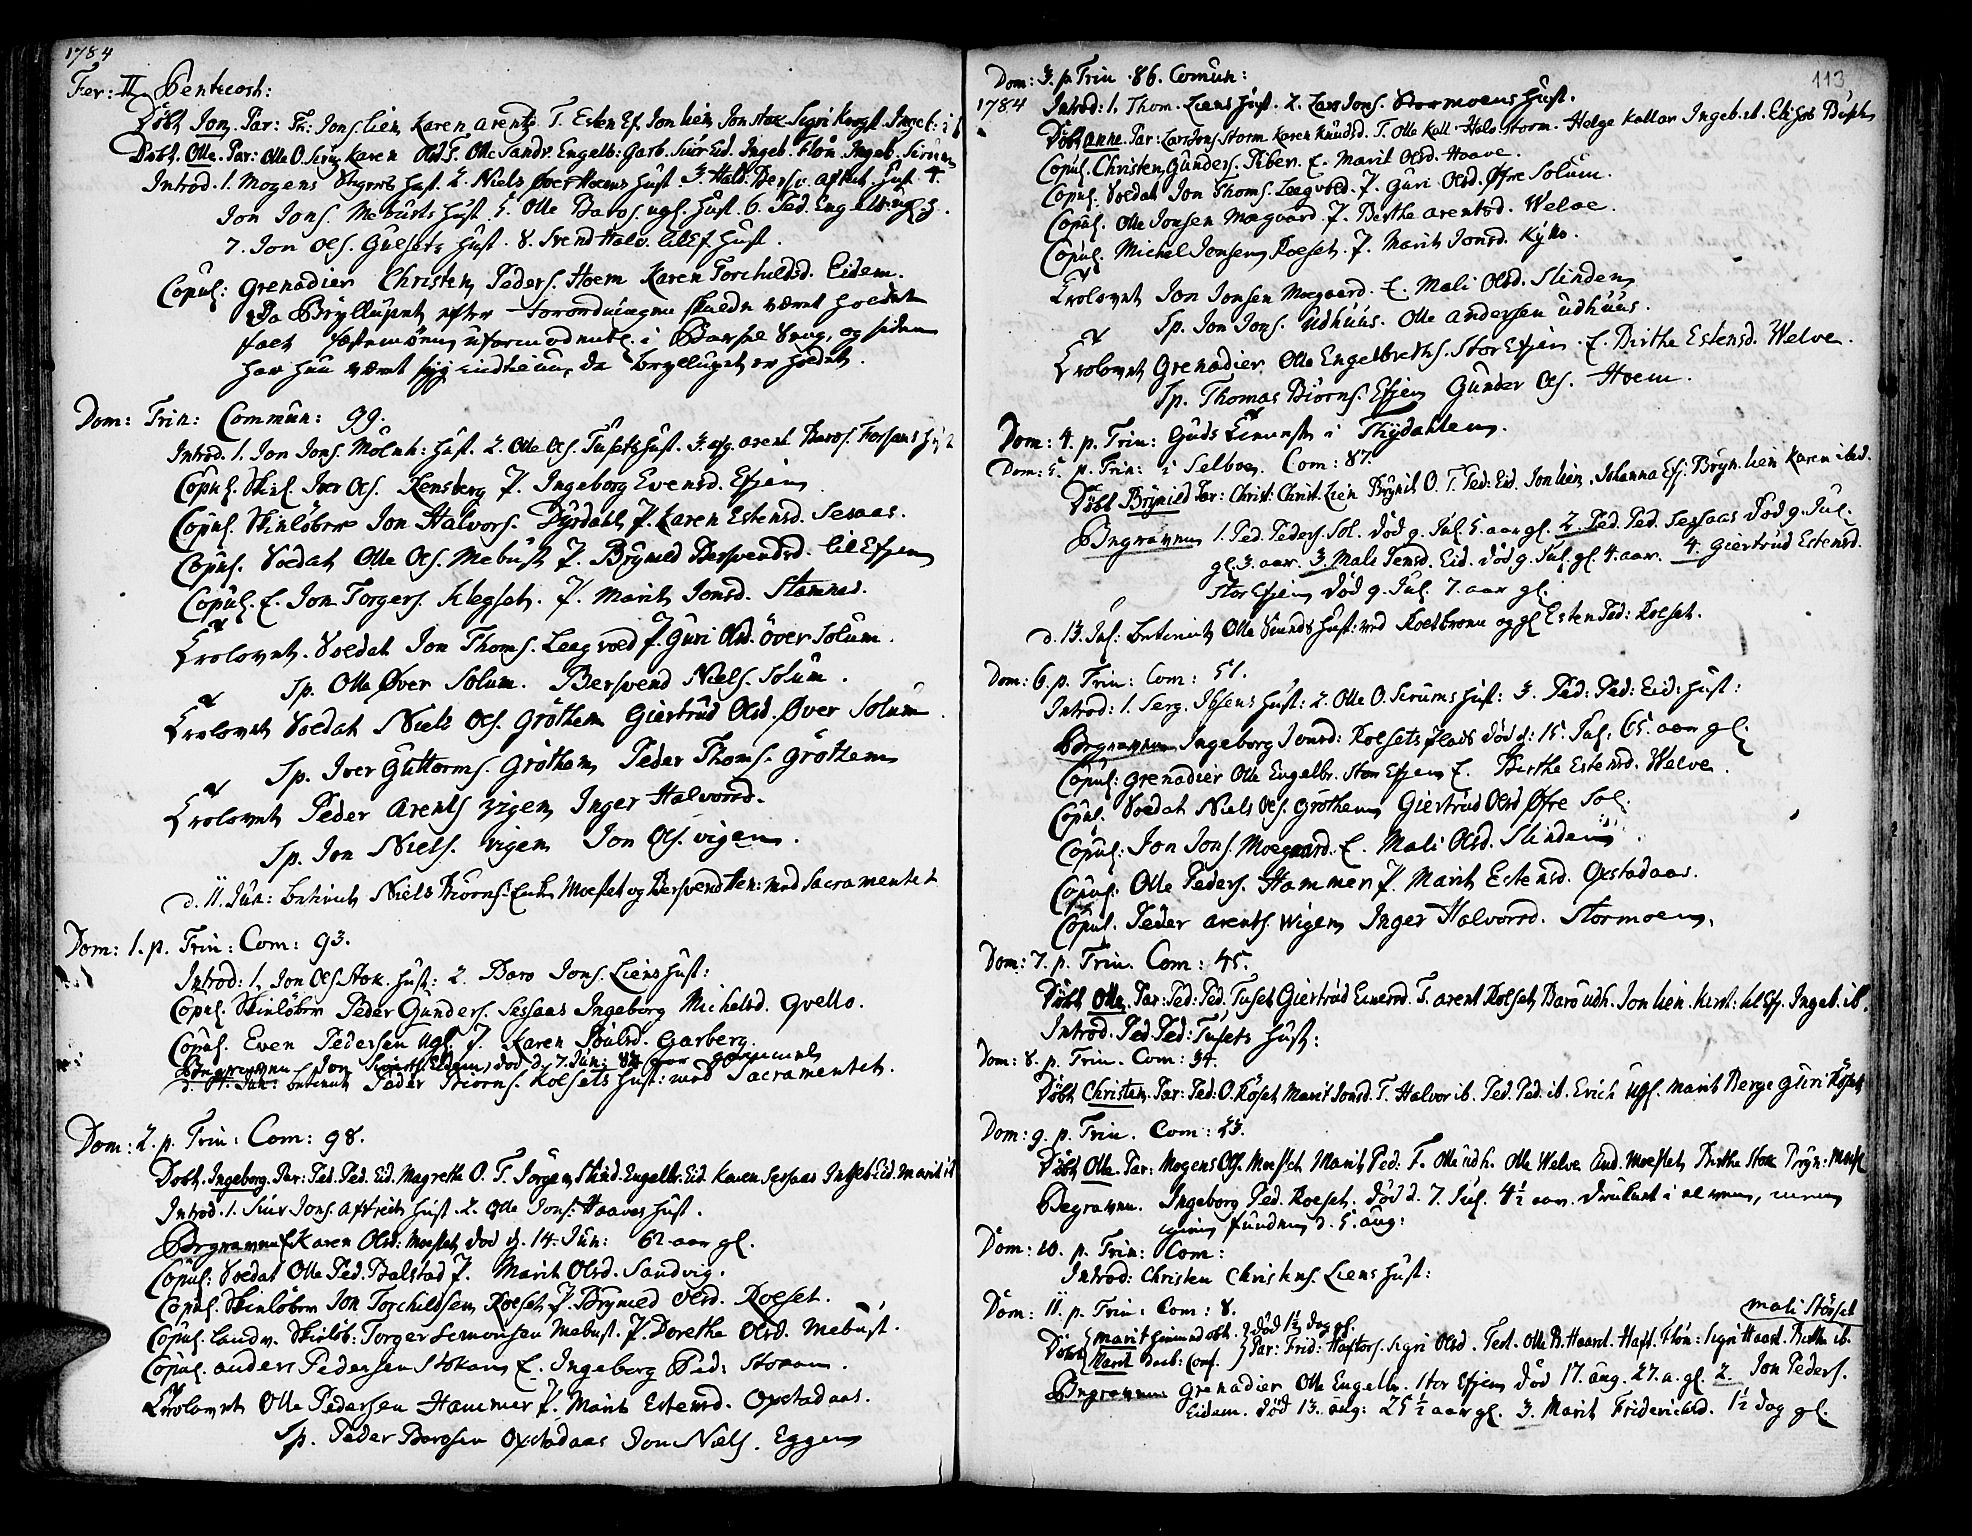 1784
Fer: II Pentecost:
Döbt Jon. Par: Th: Jons. Lien Karen Arentz T. Esten Ef. Jon Lien Jon Stok Sigri Ingeb: ib
Döbt. Olle. Par: Olle O. Karen Olsd T. Olle Sandv. Engelb: Garb. Siur Eid. Ingeb. Flön Ingeb.
Introd. 1. Mogens Hust. 2. Niels Øver Hoems Hust. 3. Hald: Bersv. Hust. 4.
Jon Jons. Mebusts Hust. 5. Olle Baros. ugl. Hust. 6. Ped. Engelb. ugl. H.
7. Jon Ols. Gulsets Hust. 8. Svend Halv. lilEf. Hust.
Copul: Grenadier Christen Peders. Hoem Karen Torchildsd. Eidem.
Da Brylluppet efter Forordningen skulde været holdet
faldt i Barsel Seng, og siden
har hun været syg indtil nu, da brylluppet er holdet.
Dom: Trin: Commun: 99.
Introd. 1. Jon Jons. Molnh: Hust. 2. Olle Ols. Tusets Hust. 3. Arent Baros. Forsans Hust
Copul. Skil. Iver Ols. Rensberg P. Ingeborg Evensd. Efjem
Copul. Skilöber Jon Halvors. Dyrdahl P. Karen Estensd. Sesaas.
Copul. Soldat Olle Ols. Mebust P. Brynild Bersvendsd. lilEfjem
Copul. E. Jon Torgers. Klegset. P. Marit Jonsd. Stamnes.
Trolovet. Soldat Jon Thoms. Leagvold P. Guri Olsd. över Solum.
Sp. Olle Øver Solum. Bersvend Niels. Solum.
Trolovet Soldat Niels Ols. Gröthem Giertrud Olsd. Øver Solum.
Sp. Iver Guttorms. Gröthem Peder Thoms. Gröthem
Trolovet Peder Arents Vigen Inger Halvorsd.
Sp. Jon Niels. Vigen Jon Ols. Vigen.
d. 11. Jun: betient Niels Biorns: Enke Moeslet og Bersvend Ten: med Sacramentet
Dom: 1. p. Trin: Com: 93.
Introd: 1. Jon Ols. Stok. Hust: 2. Baro Jons. Liens Hust:
Copul. Skilöber Peder Gunders. Sessaas Ingeborg Michelsd. Qvello.
Copul. Even Pedersen Ugl. P. Karen Poulsd. Garberg.
Begraven Jon Eidem, död d. 7. Jun: 84 aar gammel
d. Jun: betient Peder Biorns. Rolsets Hust: med Sacramentet.
Dom: 2. p. Trin: Com: 98.
Döbt. Ingeborg. Par: Ped. Ped. Eid. Magrethe O. T. Jörgen Engelbr. Eid. Karen Sessaas Eid. Marit ib
Introd. 1. Siur Jons. Hust. 2. Olle Jons: Haaves Hust.
Begraven Karen Olsd: Moeslet död d. 14. Jun: 62 aar gl.
Copul: Soldat Olle Ped. Balstad P. Marit Olsd. Sandvig.
Copul. Skilöber Jon Torchildsen Roeset P. Brynild Olsd. Roeset.
Copul. Landv. Skilöb: Torger Semonsen Mebust. P. Dorethe Olsd. Mebust.
Copul. Anders Pedersen Stokan E. Ingeborg Ped: Stokan.
Trolovet Olle Pedersen Hammer P. Marit Estensd. Opstadaas.
Sp. Peder Barosen Opstadaas Jon Niels. Eggen
113
Dom: 3. p. Trin. 86. Comun:
1784 Introd: 1. Thom. Liens Hust. 2. Lars Jons. Stormoens Hust.
Döbt Anne. Par: Lars Jons Storm. Karen Knudsd. T. Olle Kall. Hals Storm. Helge Kallar Ingeb. ib. Elisab
Copul. Christen Gunders. E. Marit Olsd. Haave.
Copul. Soldat Jon Thoms. Leagvold. P. Guri Olsd. Øfre Solum.
Copul. Olle Jonsen Moegaard P. Berthe Arentsd. Welve.
Copul. Michel Jonsen Roeset. P. Marit Jonsd. Kyllo.
Trolovet Jon Jonsen Moegaard. E. Mali Olsd. Slindem
Sp. Jon Jons. Udhuus. Olle Andersen Udhuus.
Trolovet Grenadier Olle Engelbreths. Stor Efjem. E. Birthe Estensd. Welve.
Sp. Thomas Biorns. Efjem Gunder Ols. Hoem.
Dom: 4. p. Trin: Guds tieneste i Thydahlen.
Dom: 5. p. Trin: i Selboe. Com: 87.
Döbt Brynild Par: Christ: Christ. Lien Brynil O. T. Ped: Eid. Jon Lien. Johanna Ef. Bryn. Lien Karen ibid.
Begraven 1. Ped. Peders. Sol. död 9. Jul. 5. aar gl. 2. Ped. Ped. Sessaas död 9. Jul.
gl. 3. aar. 3. Mali Jensd. Eid. död 9. Jul. gl. 4. aar. 4. Giertrud Estensd.
Stor Efjem död 9. Jul. 7. aar gl.
d. 13. Jul: betient Olle Hust: ved og gl. Esten Ped: Rolset.
Dom: 6. p. Trin: Com: 51.
Introd: 1. Serg. Ibsens Hust: 2. Olle O. Hust: 3. Ped: Ped: Eid: Hust:
Begraven Ingeborg Jonsd: Rolsets plads död d: 15. Jul. 65. aar gl.
Copul: Grenadier Olle Engelbr. Stor Efjem E. Berthe Estensd. Welve.
Copul. Soldat Niels Ols. Gröthem Giertrud Olsd Øfre Sol:
Copul: Jon Jons. Moegaard. E. Mali Olsd. Slindem
Copul: Olle Peders. Hammer P. Marit Estensd. Opstadaas.
Copul. Peder Arents. Wigen Inger Halvorsd. Stormoen.
Dom: 7. p. Trin. Com: 45.
Döbt Olle. Par: Ped: Ped. Tuset Giertrud T. Arent Rolset Baro Udh. Jon Lien. Kirst: lilEf. Ingeb. ib.
Introd. Ped. Ped: Tusets Hust:
Dom: 8. p. Trin. Com: 34.
Döbt Christen. Par: Ped: O. Röset Marit Jonsd. T. Halvor ib. Ped. Ped. ib. Erich Ugl. Marit Berge Guri Röset
Dom: 9. p. Trin. Com: 23.
Döbt Olle. Par: Mogens Ols. Moeslet Marit Ped: T. Olle Udh. Olle Welve And. Moeslet Birthe Stok Bryn. Moesl
Begraven. Ingeborg Ped. Roeset. död d. 7. Jul. 4½ aar. druknet i elven, men
igien funden d. 5. Aug:
Dom: 10. p. Trin: Com:
Introd: Christen Christens. Liens Hust:
Dom: 11. p. Trin: Com: 8.
Mali Stöset
Döbt Marit hiemedöbt. död 1½ dag gl.
Marit Conf. Par: Frid: Haftors. Sigri Olsd. Test. Olle R. Haarst. Haft. Flön: Sigri Haarst. Birthe ib.
Begraven Grenadier Olle Engelbr. Stor Efjem död 17. Aug. 27. a. gl. 2. Jon Peders.
Eidem. död 13. Aug: 25½ aar gl. 3. Marit Friderichsd. 1½ dag gl.